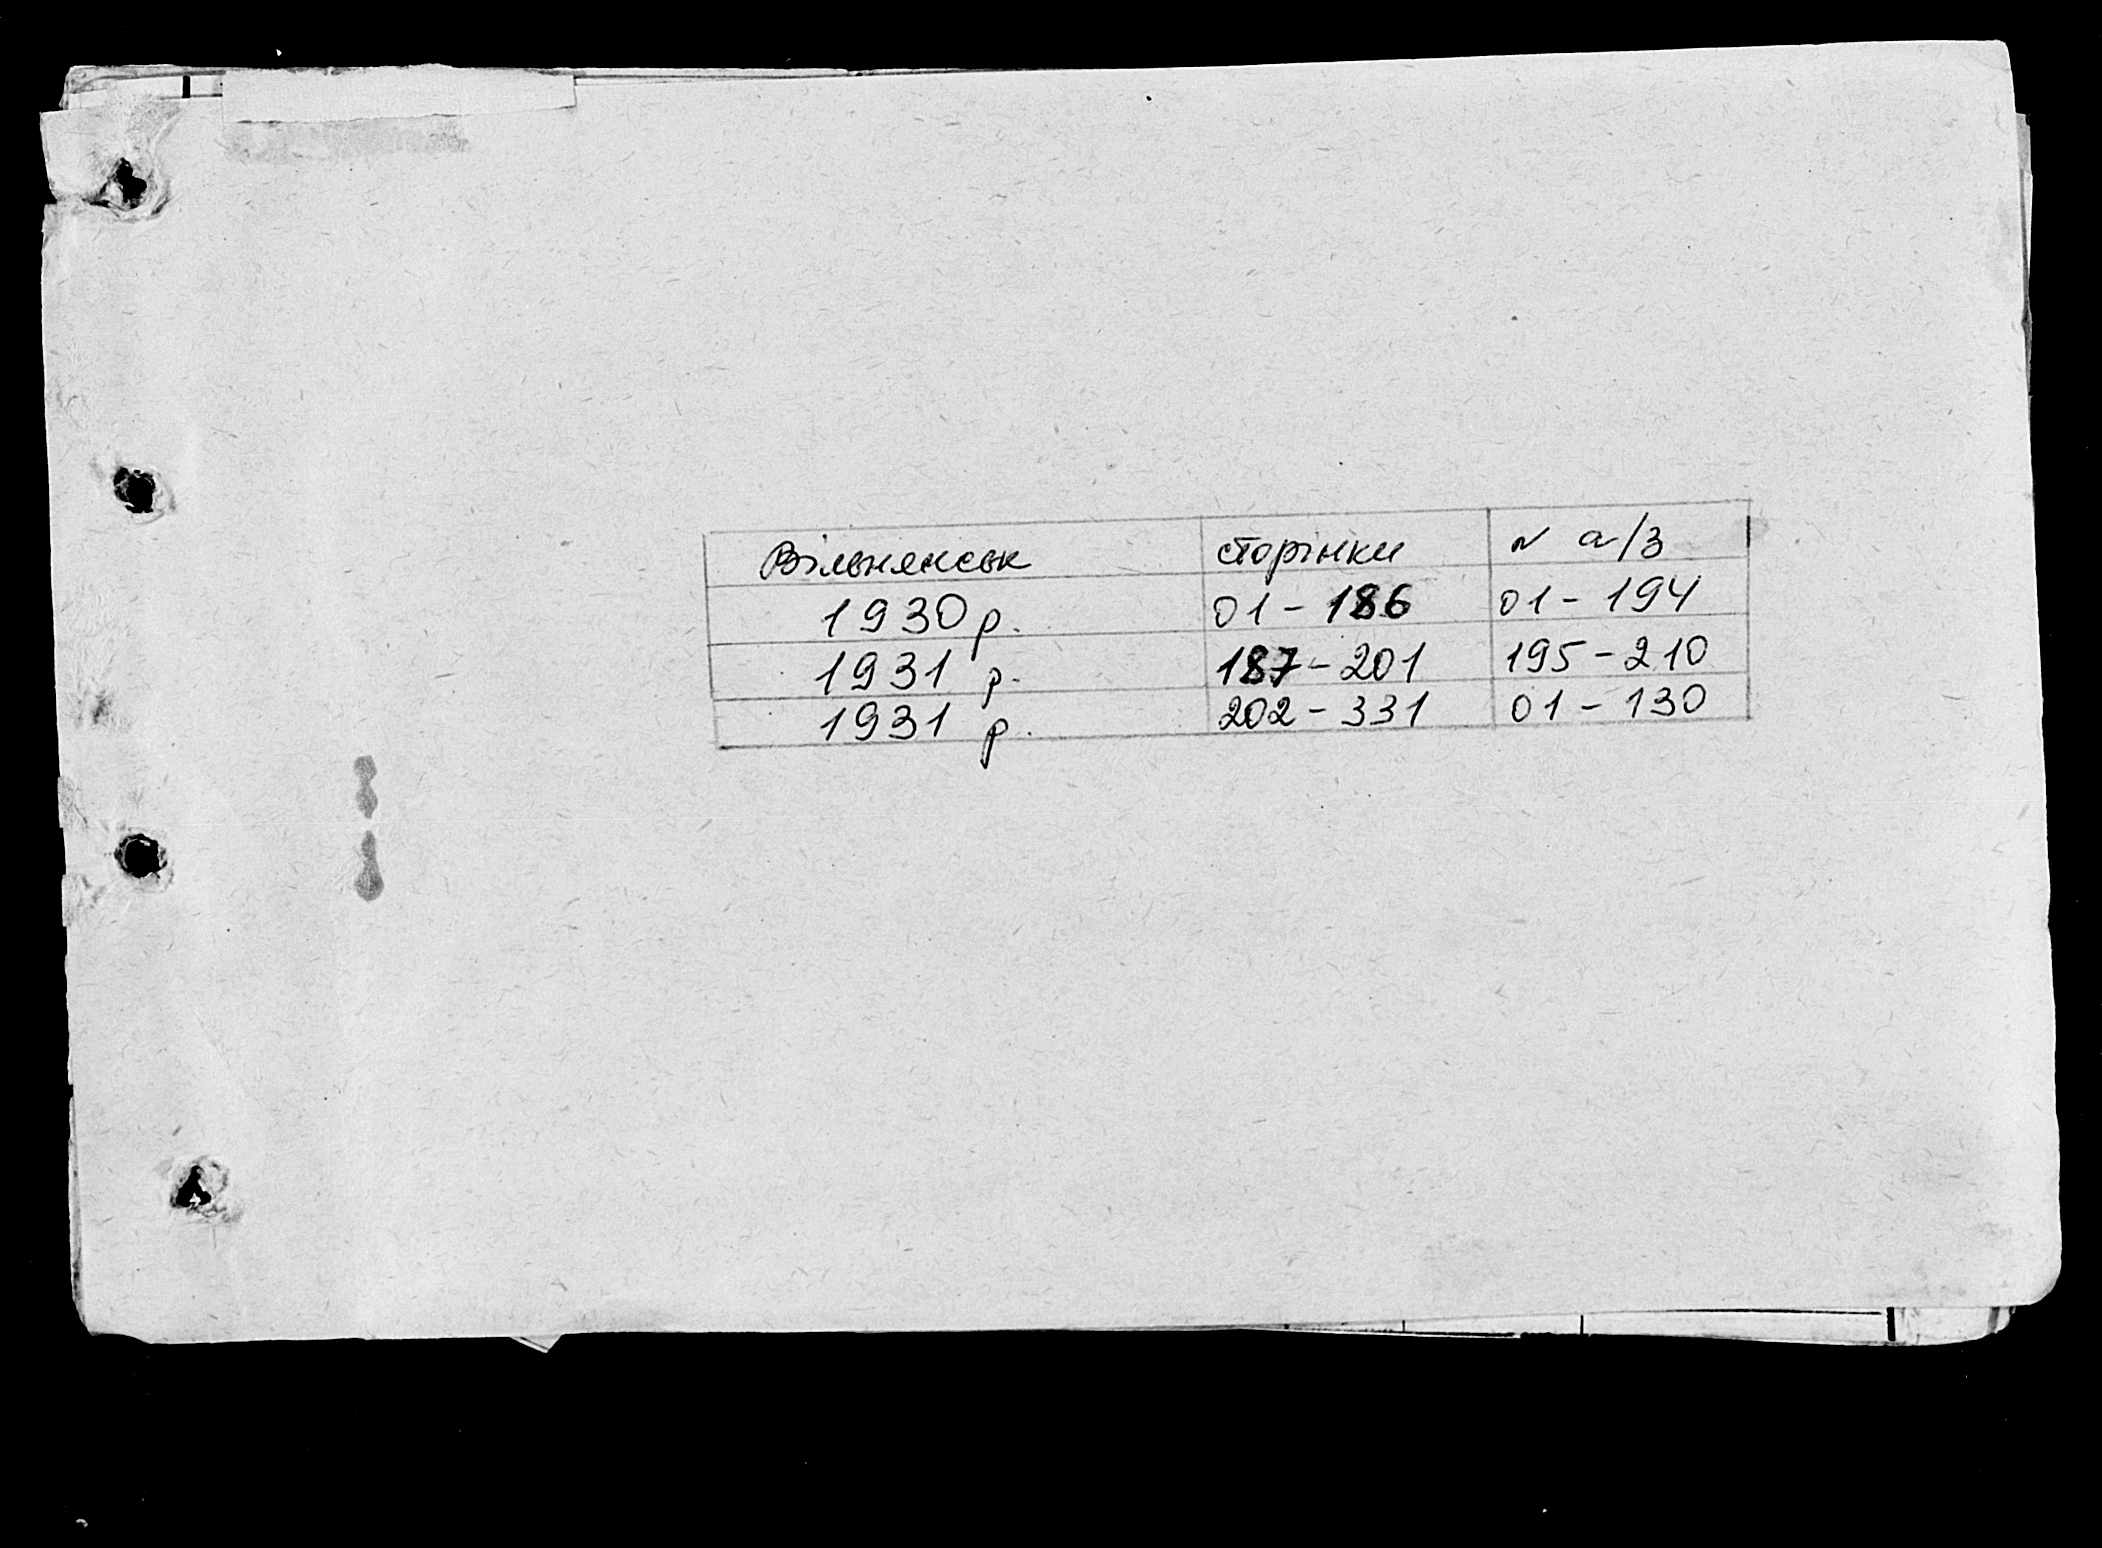 Вільнянськ сторінки № а/з
1930 р. 01 - 186 01 - 194
1931 р. 187 - 201 195 - 210
1931 р. 202 - 331 01 - 130